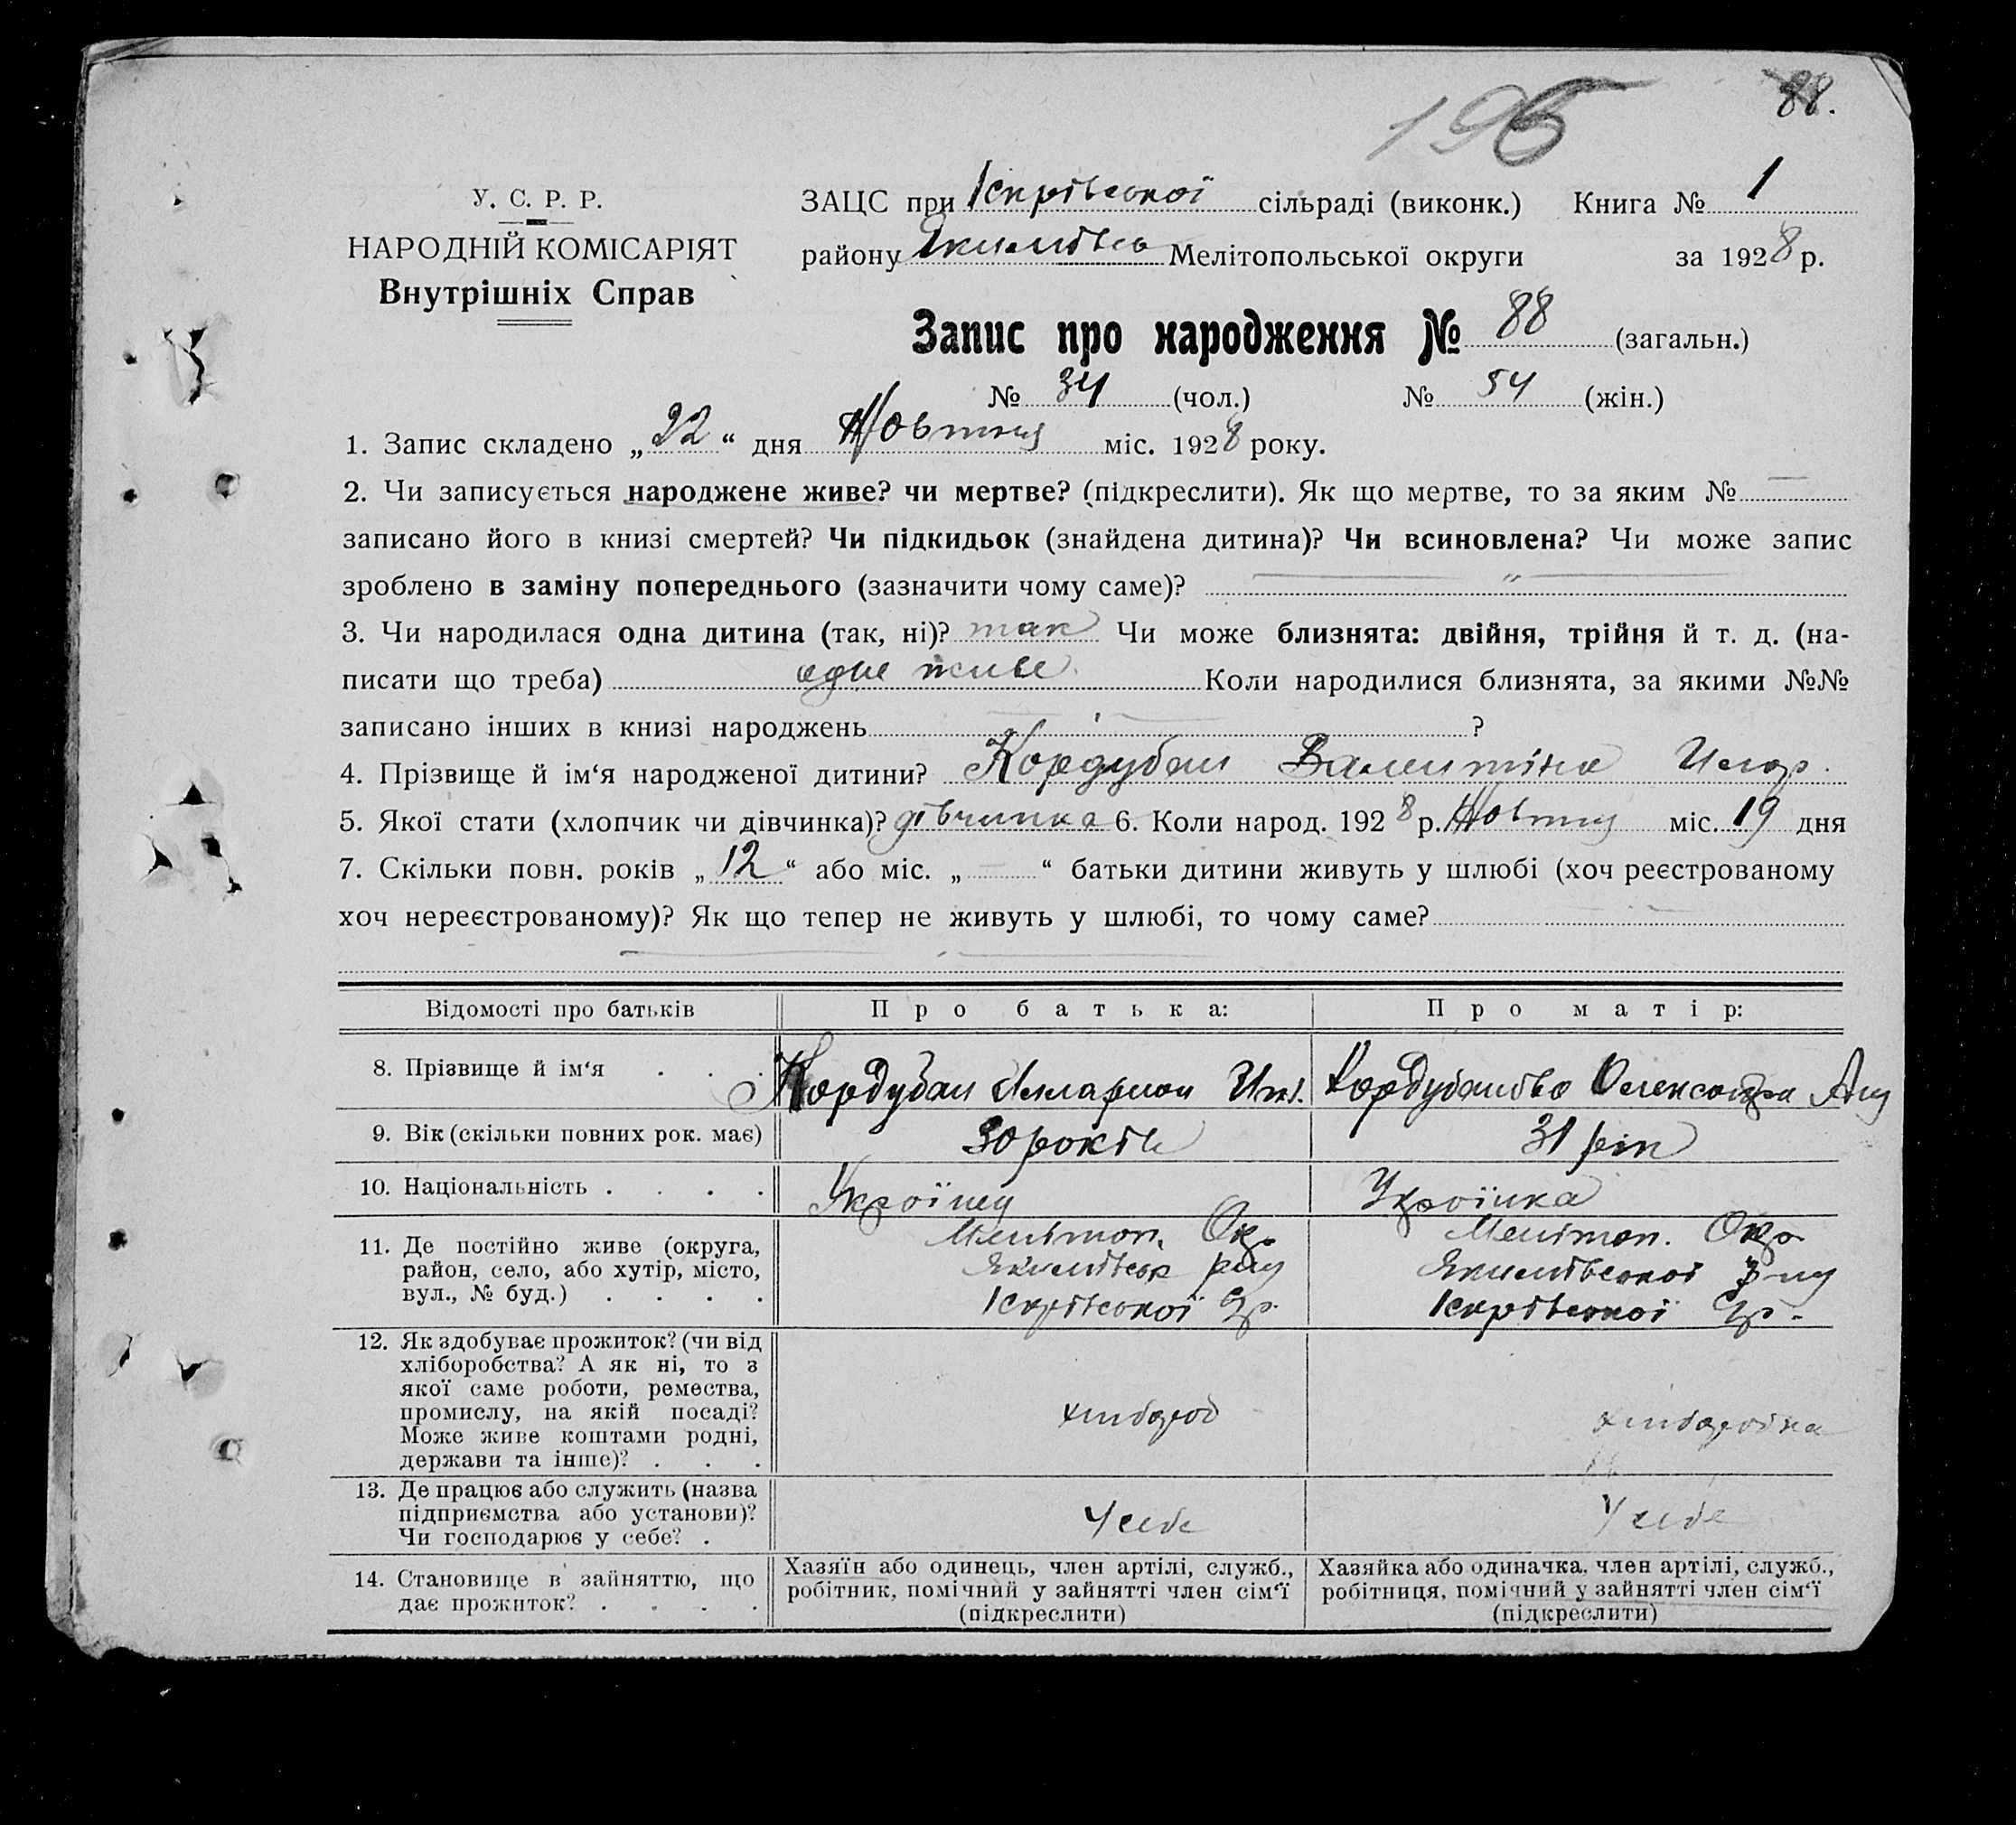 195
88.
У. С. Р. Р.
НАРОДНІЙ КОМІСАРІЯТ
Внутрішніх Справ
ЗАЦС при Іскрівської сільраді (виконк.) Книга № 1
району Якимівсь Мелітопольської округи за 1928 р.
Запис про народження № 88 (загальн.)
№ 34 (чол.) № 54 (жін.)
1. Запис складено „22“ дня Жовтня міс. 1928 року.
2. Чи записується народжене живе? чи мертве? (підкреслити). Як що мертве, то за яким № —
записано його в книзі смертей? Чи підкидьок (знайдена дитина)? Чи всиновлена? Чи може запис
зроблено в заміну попереднього (зазначити чому саме)? — „ —
3. Чи народилася одна дитина (так, ні)? так Чи може близнята: двійня, трійня й т. д. (на-
писати що треба) одне живе Коли народилися близнята, за якими №№
записано інших в книзі народжень ?
4. Прізвище й ім‘я народженої дитини? Кордубан Валентіна Илар.
5. Якої стати (хлопчик чи дівчинка)? дівчинка 6. Коли народ. 1928 р. Жовтня міс. 19 дня
7. Скільки повн. років „12“ або міс. „—“ батьки дитини живуть у шлюбі (хоч реєстрованому
хоч нереєстрованому)? Як що тепер не живуть у шлюбі, то чому саме?
Відомості про батьків Про батька: Про матір:
8. Прізвище й ім‘я . . . Кордубан Илларион Кордубанова Олександра
9. Вік (скільки повних рок. має) 30 років 31 рік
10. Національність . . . . Українец Українка
11. Де постійно живе (округа, Меліитоп. Окр. Мелитоп. Окр.
район, село, або хутір, місто, Якимівськ рну Якимівської р-ну
вул., № буд.) . . . . Іскрівської Ср. Іскрівської Ср.
12. Як здобуває прожиток? (чи від
хліборобства? А як ні, то з
якої саме роботи, ремества,
промислу, на якій посаді? хлібороб хліборобка
Може живе коштами родні,
держави та інше)? . . .
13. Де працює або служить (назва
підприємства або установи)? У себе У себе
Чи господарює у себе? .
14. Становище в зайняттю, що Хазяїн або одинець, член артілі, служб., Хазяйка або одиначка, член артілі, служб.,
дає прожиток? . . . . робітник, помічний у зайнятті член сім‘ї робітниця, помічний у зайнятті член сім‘ї
(підкреслити) (підкреслити)